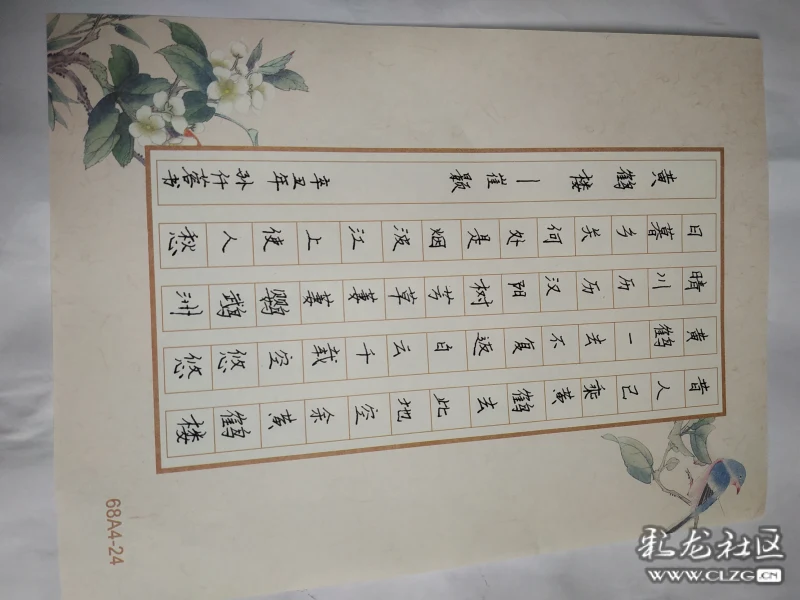 昔人已乘黄鹤去此地空余黄鹤楼
黄鹤一去不复返白云千载空悠悠
晴川历历汉阳树芳草萋萋鹦鹉洲
日暮乡关何处是烟波江上使人愁
黄鹤楼 — 催颢 辛丑年 孙仟蓉书
68A4-24
彩龙社区
WWW.CLZG.CN